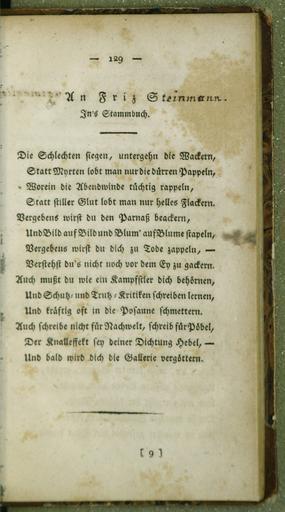 — 129 —
An Friz Steinmann.
In's Stammbuch.
Die Schlechten siegen, untergehn die Wackern,
Statt Myrten lobt man nur die dürren Pappeln,
Worein die Abendwinde tüchtig rappeln,
Statt stiller Glut lobt man nur helles Flackern.
Vergebens wirst du den Parnaß beackern,
Und Bild auf Bild und Blum' auf Blume stapeln,
Vergebens wirst du dich zu Tode zappeln, —
Verstehst du's nicht noch vor dem Ey zu gackern.
Auch mußt du wie ein Kampfstier dich behörnen,
Und Schutz- und Trutz-Kritiken schreiben lernen,
Und kräftig oft in die Posaune schmettern.
Auch schreibe nicht für Nachwelt, schreib für Pöbel,
Der Knalleffekt sey deiner Dichtung Hebel, —
Und bald wird dich die Gallerie vergöttern.
[ 9 ]